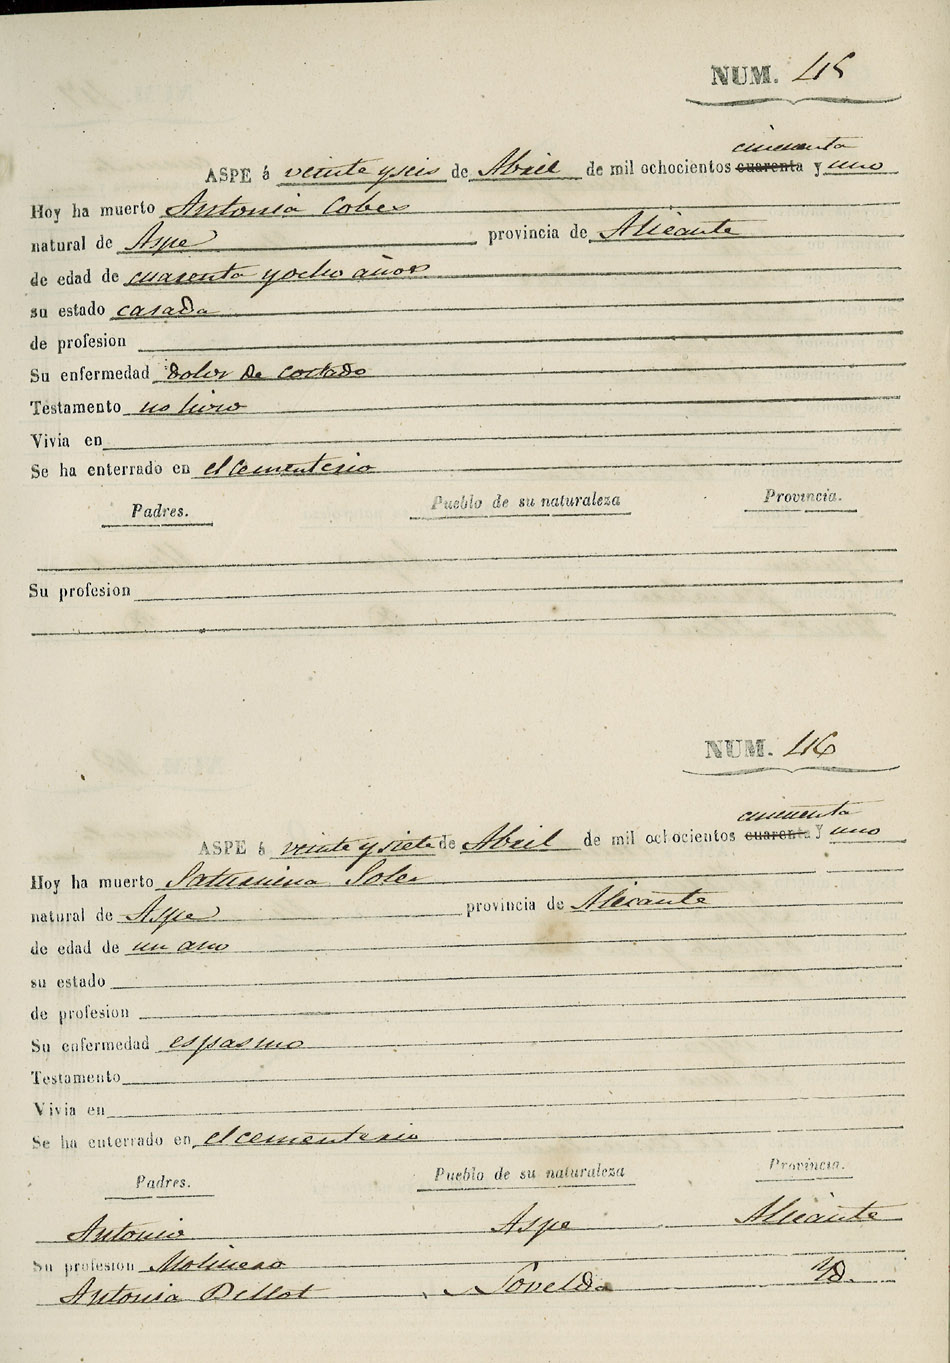 NUM. 45
cincuenta
ASPE á veinte y seis de Abril de mil ochocientos cuarenta y uno
Hoy ha muerto Antonia Cobes
natural de Aspe provincia de Alicante
de edad de cuarenta y ocho años
su estado casada
de profesion
Su enfermedad dolor de costado
Testamento no hizo
Vivia en
Se ha enterrado en el cementerio
Padres. Pueblo de su naturaleza Provincia.
Su profesion
NUM. 46
cincuenta
ASPE á veinte y siete de Abril de mil ochocientos cuarenta y uno
Hoy ha muerto Saturnina Soler
natural de Aspe provincia de Alicante
de edad de un año
su estado
de profesion
Su enfermedad espasmo
Testamento
Vivia en
Se ha enterrado en el cementerio
Padres. Pueblo de su naturaleza Provincia.
Antonio Aspe Alicante
Su profesion Molinero
Antonia Bellot Novelda Yd.